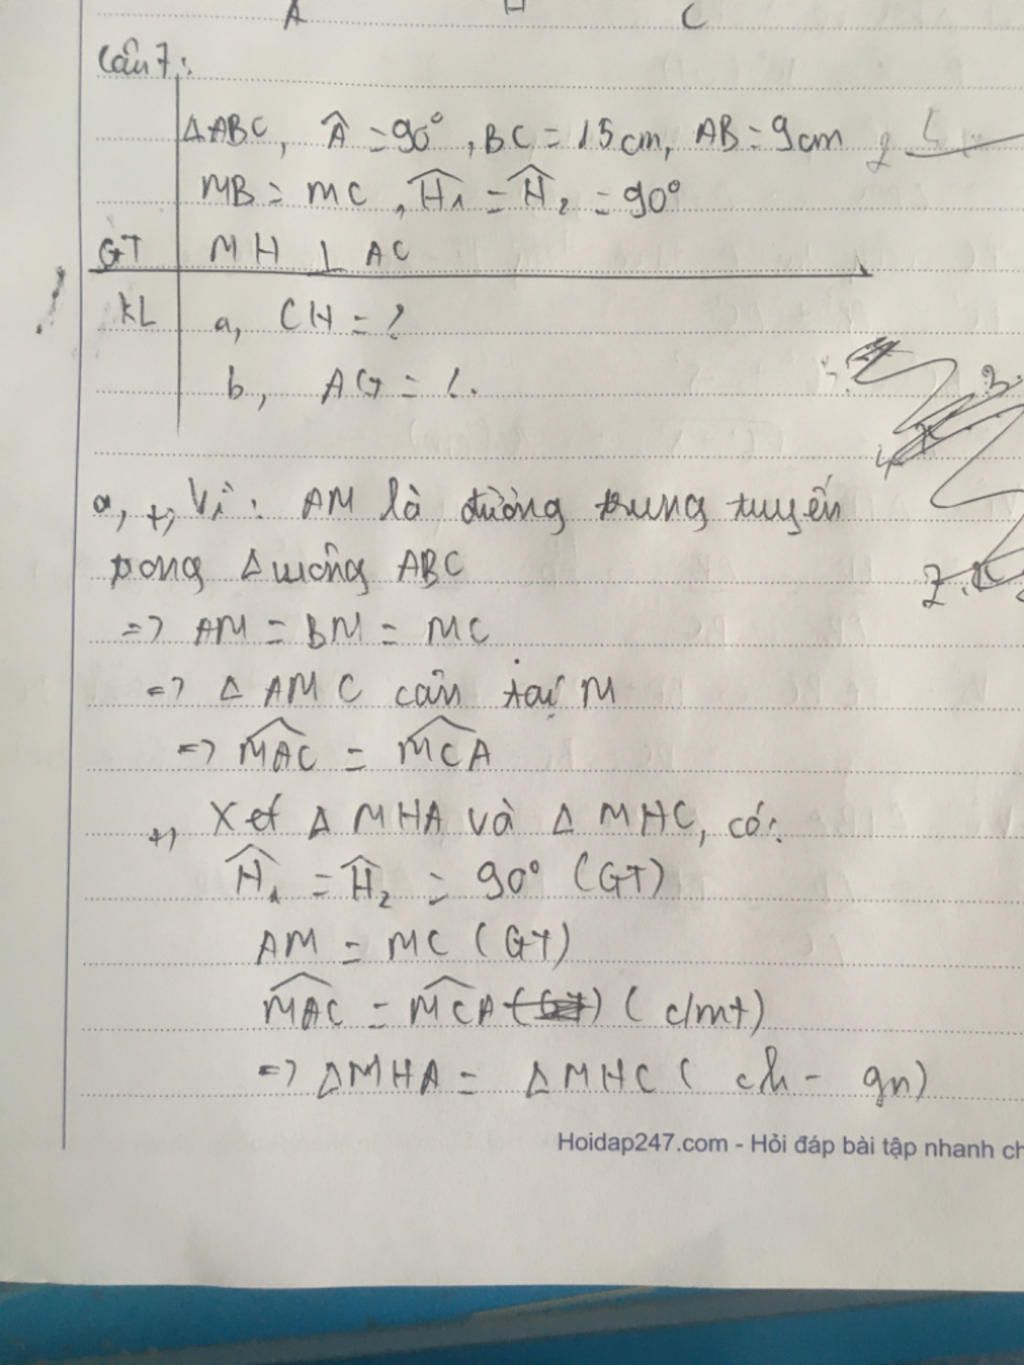 A H C
Câu 7:
ΔABC, Â = 90°, BC = 15cm, AB = 9cm
MB = MC, Ĥ₁ = Ĥ₂ = 90°
GT MH ⊥ AC
KL a, CH = ?
b, AG = ?.
a, +, Vì: AM là đường trung tuyến
trong Δ vuông ABC
=> AM = BM = MC
=> Δ AMC cân tại M
=> MAC = MCA
+, Xét Δ MHA và Δ MHC, có:
Ĥ₁ = Ĥ₂ = 90° (GT)
AM = MC (GT)
MAC = MCA (c/mt)
=> ΔMHA = ΔMHC ( ch - gn)
Hoidap247.com - Hỏi đáp bài tập nhanh ch